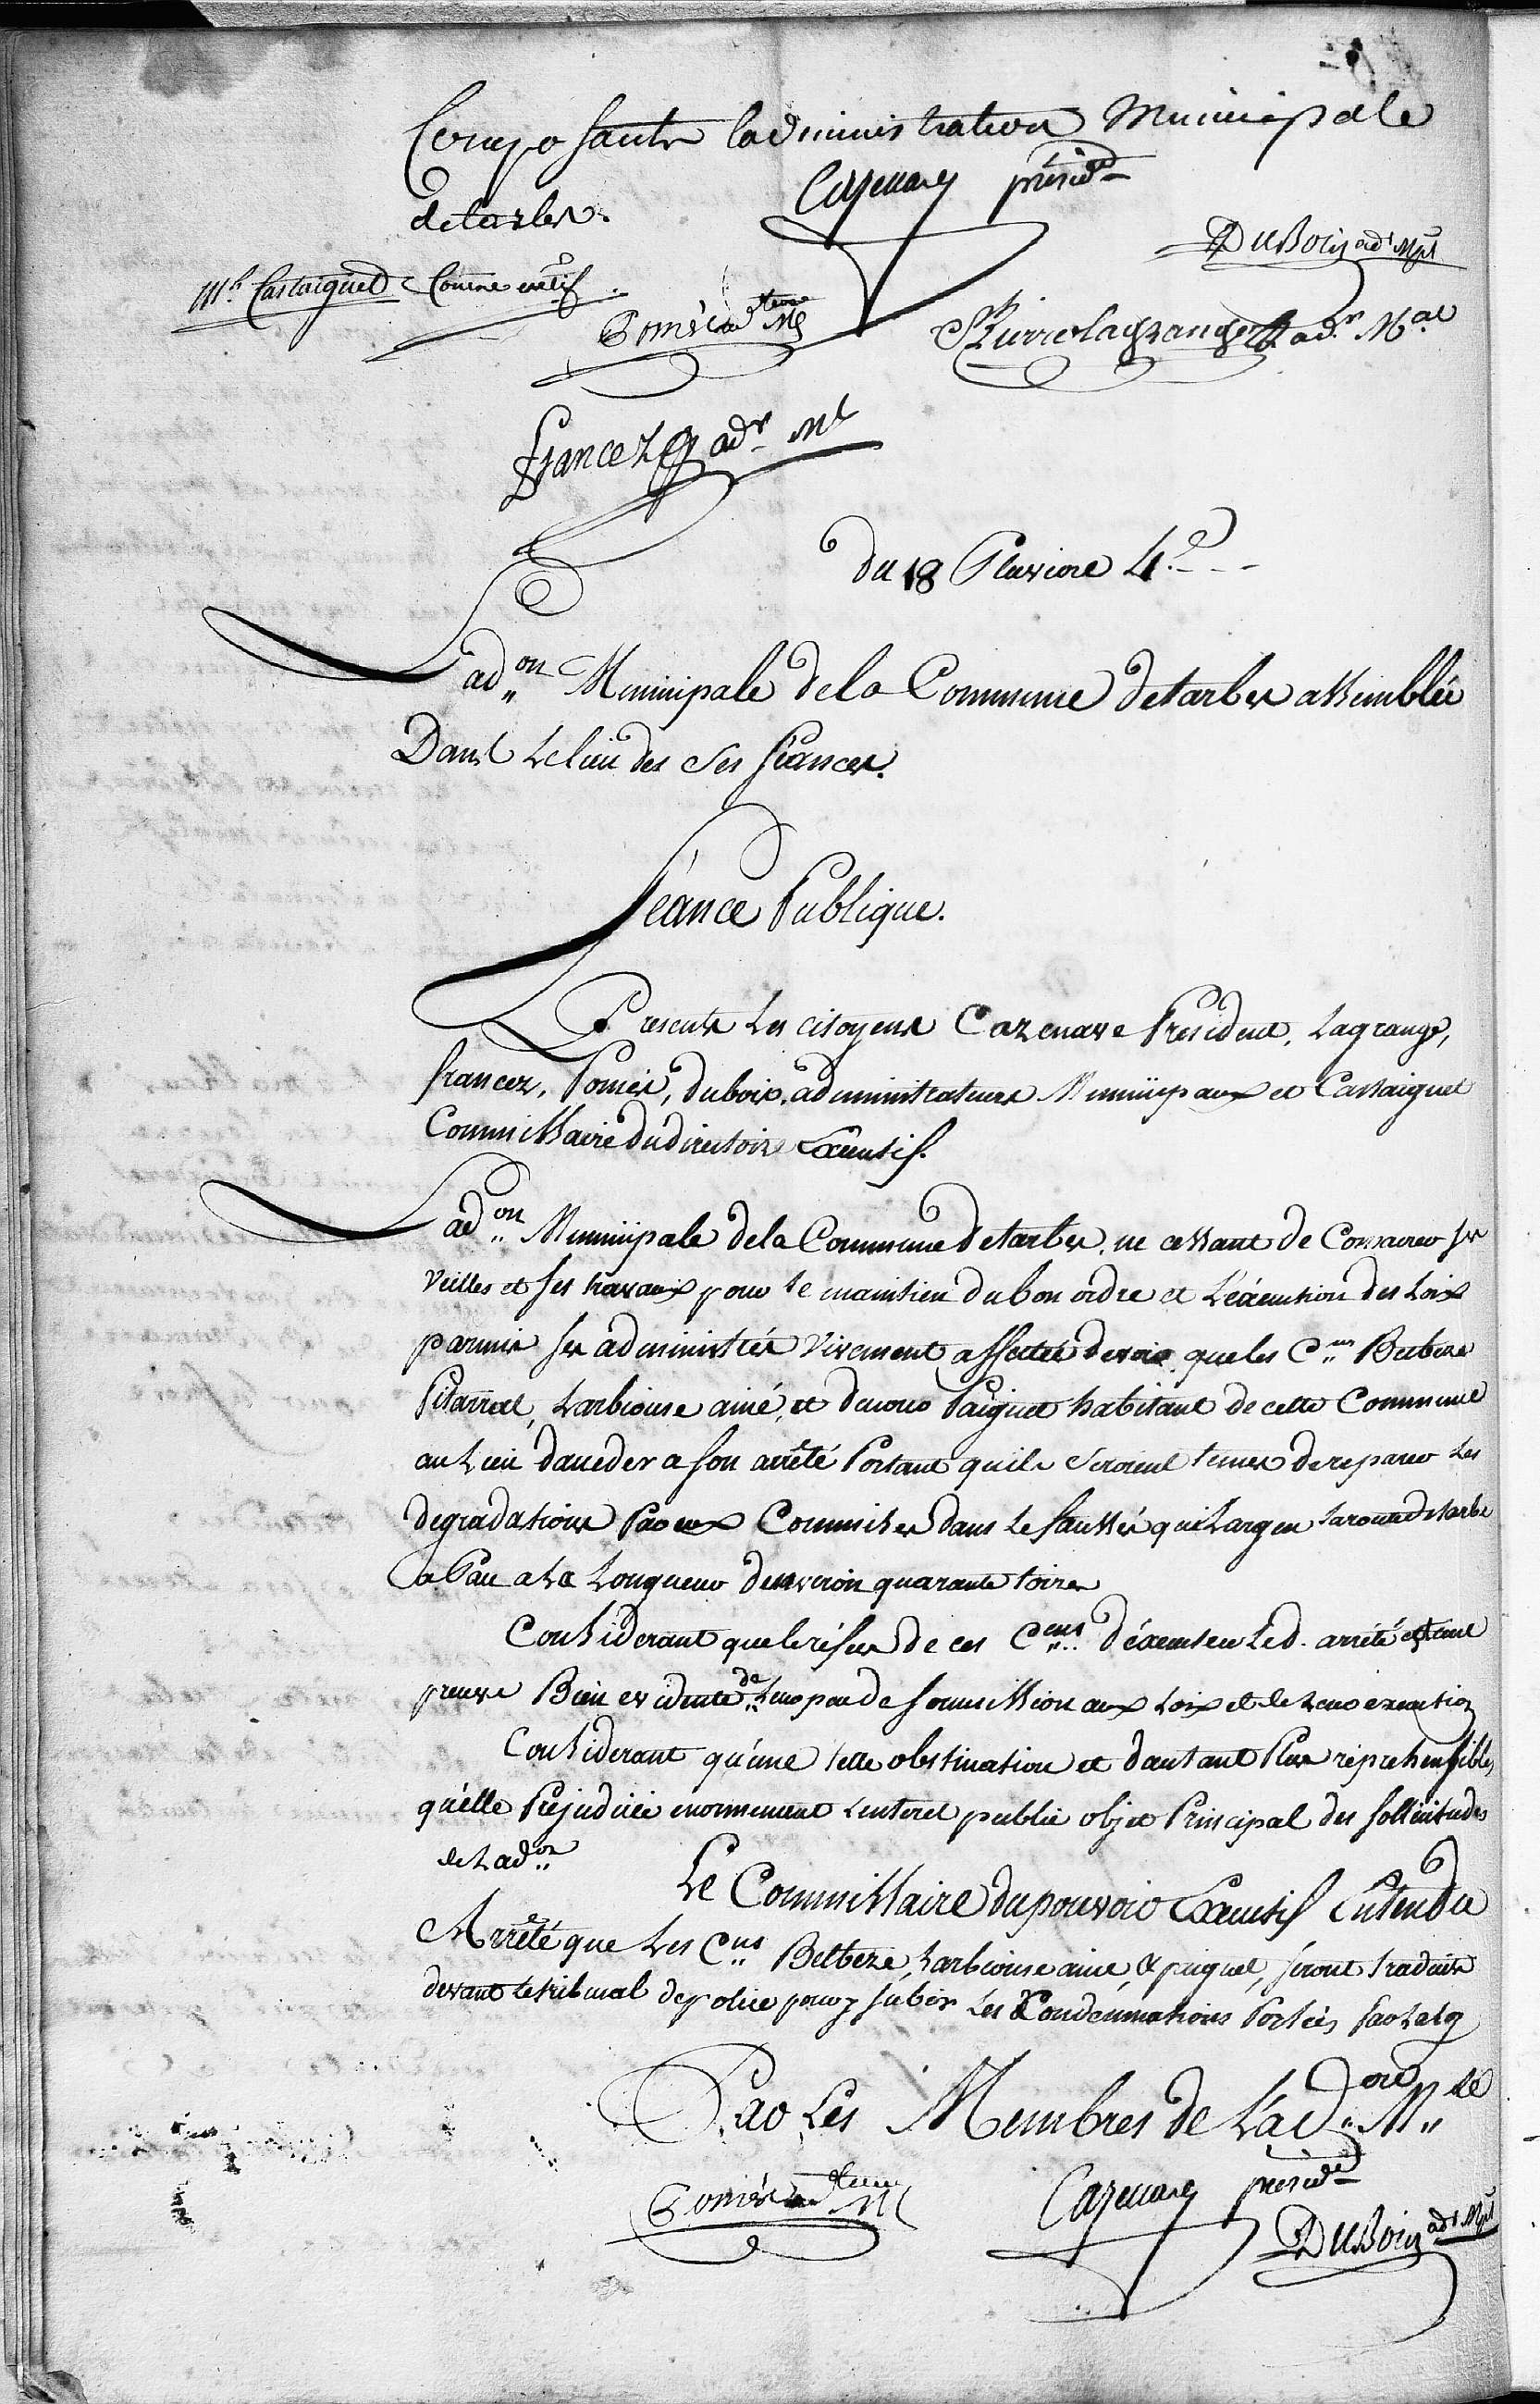 Composants ladministration Municipale
detarbes.
Cazenave présidt
DuBois adr Mpl
Mh Castaignet Comre exetif
Pomès adteur Ml
Pierre lagrange adr Mal
francez adr Ml
du 18 Pluviose 4e
L'adon Municipale dela Commune detarbes assemblée
Dans Le lieu des Ses séances.
Séance Publique.
Presents Les citoyens Cazenave Président, Lagrange,
francez, Pomès, dubois, administrateurs Municipaux et Castaignet
Commissaire du directoire Executif.
L'adon Municipale dela Commune detarbes, ne cessant de Consacrer ses
veilles et ses travaux pour le maintien du bon ordre et L'éxécution des Loix
parmis ses administrés vivement affectée devoir que les Cens Belbeze
Larbiouse ainé, et Paiguet habitant de cette Commune
au Lieu dacceder a son arrêté Portant quils Seroient tenus dereparer Les
degradations Par eux Commises dans Le faussés qui Largeu laroute detarbe
a Pau a La Longueur denviron quarante toises
Considerant que le réfus de ces Cens d'éxecuter Led. arrété est une
preuve Bien evidente de Leur peu de soumission aux Loix et de Leur execution
Considerant qu'une telle obstination et dautant Plus répréhensible,
qu'elle Préjudicie enormement Lenteret public objet Principal des sollicitudes
de Ladon
Le Commissaire dupouvoir Executif Entendu
Arrêté que Les Cens Belbeze, Larbiouse ainé, & paiguet, seront traduits
devant letribunal depolice pour y subir Les Condemnations Portées Par la loy
Par Les Membres de L'adon Mle
Pomès adteur Ml
Cazenave présidt
DuBois adr Mpl